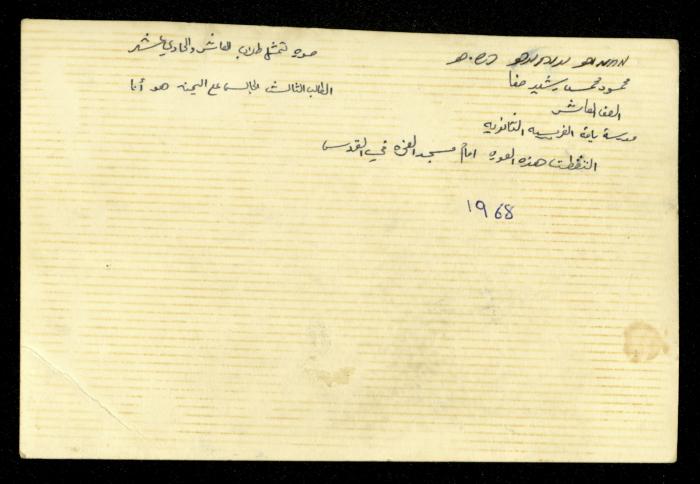 محمود محسن رشيد صفا
الصف العاشر
مدرسة باقة الغربيه الثانويه
التقطت هذه الصوره امام مسجد الصخره في القدس
صوره تمثل طلاب العاشر والحادي عشر
الطالب الثالث الجالس على اليمين هو أنا
1968